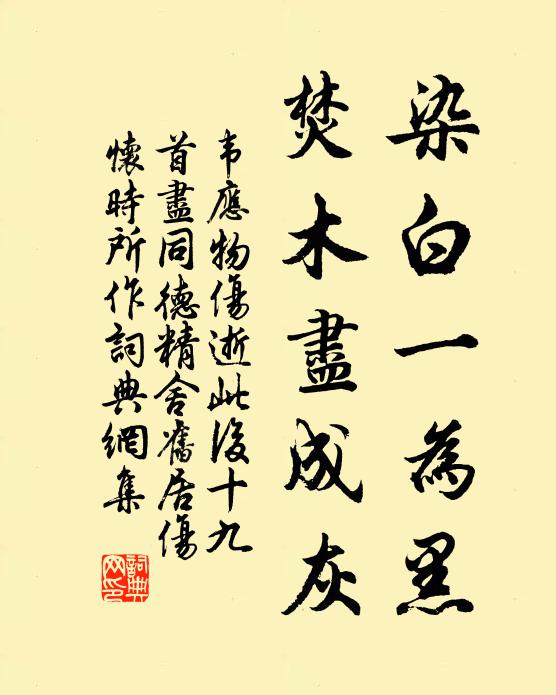 染白一為黑
焚木盡成灰
韦應物傷逝此後十九
首盡同德精舍舊居傷
懷時所作詞典網集
詞典
网印